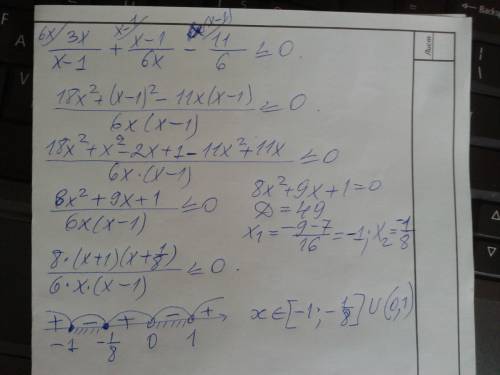 6x/ 3x/(x-1) + x-1/ (x-1)/6x - x(x-1)/ 11/6 ≤ 0.
(18x² + (x-1)² - 11x(x-1))/(6x(x-1)) ≤ 0.
(18x² + x² - 2x + 1 - 11x² + 11x)/(6x·(x-1)) ≤ 0
(8x² + 9x + 1)/(6x(x-1)) ≤ 0
8x² + 9x + 1 = 0
D = 49
x₁ = (-9-7)/16 = -1; x₂ = -1/8
(8·(x+1)(x+1/8))/(6·x·(x-1)) ≤ 0.
+ - + - +
-1 -1/8 0 1
x ∈ [-1; -1/8] ∪ (0,1)